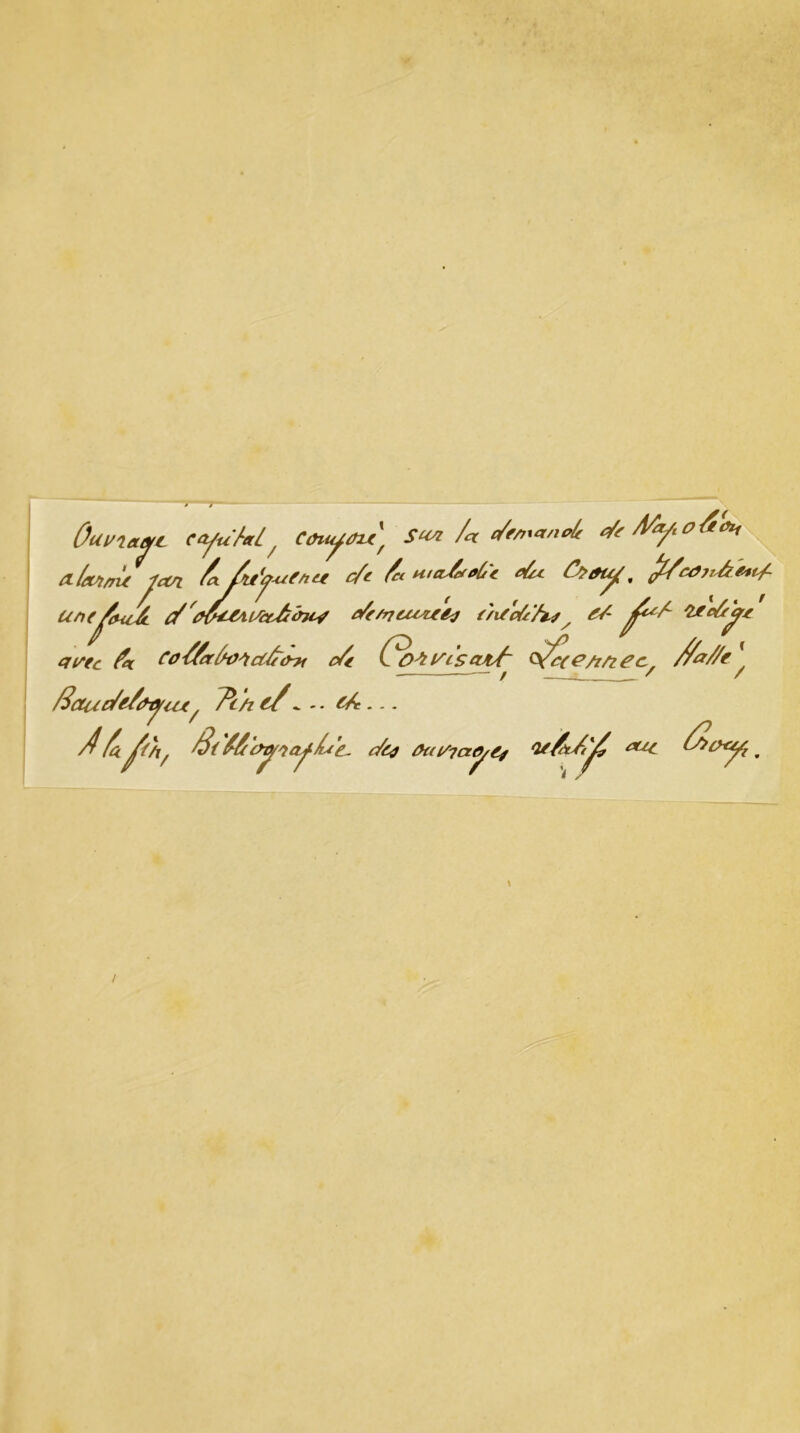 Ouvrage capital, composé, sur la demande de Napoléon
alarmé par la fréquence de la maladie du Croup. Il contient
une foule d'observations demeurées inédites, et fut rédigé
avec la collaboration de Corvisart, Laennec, Hallé,
Baudelocque, Pinel... etc...
A la fin, Bibliographie des ouvrages relatifs au Croup.